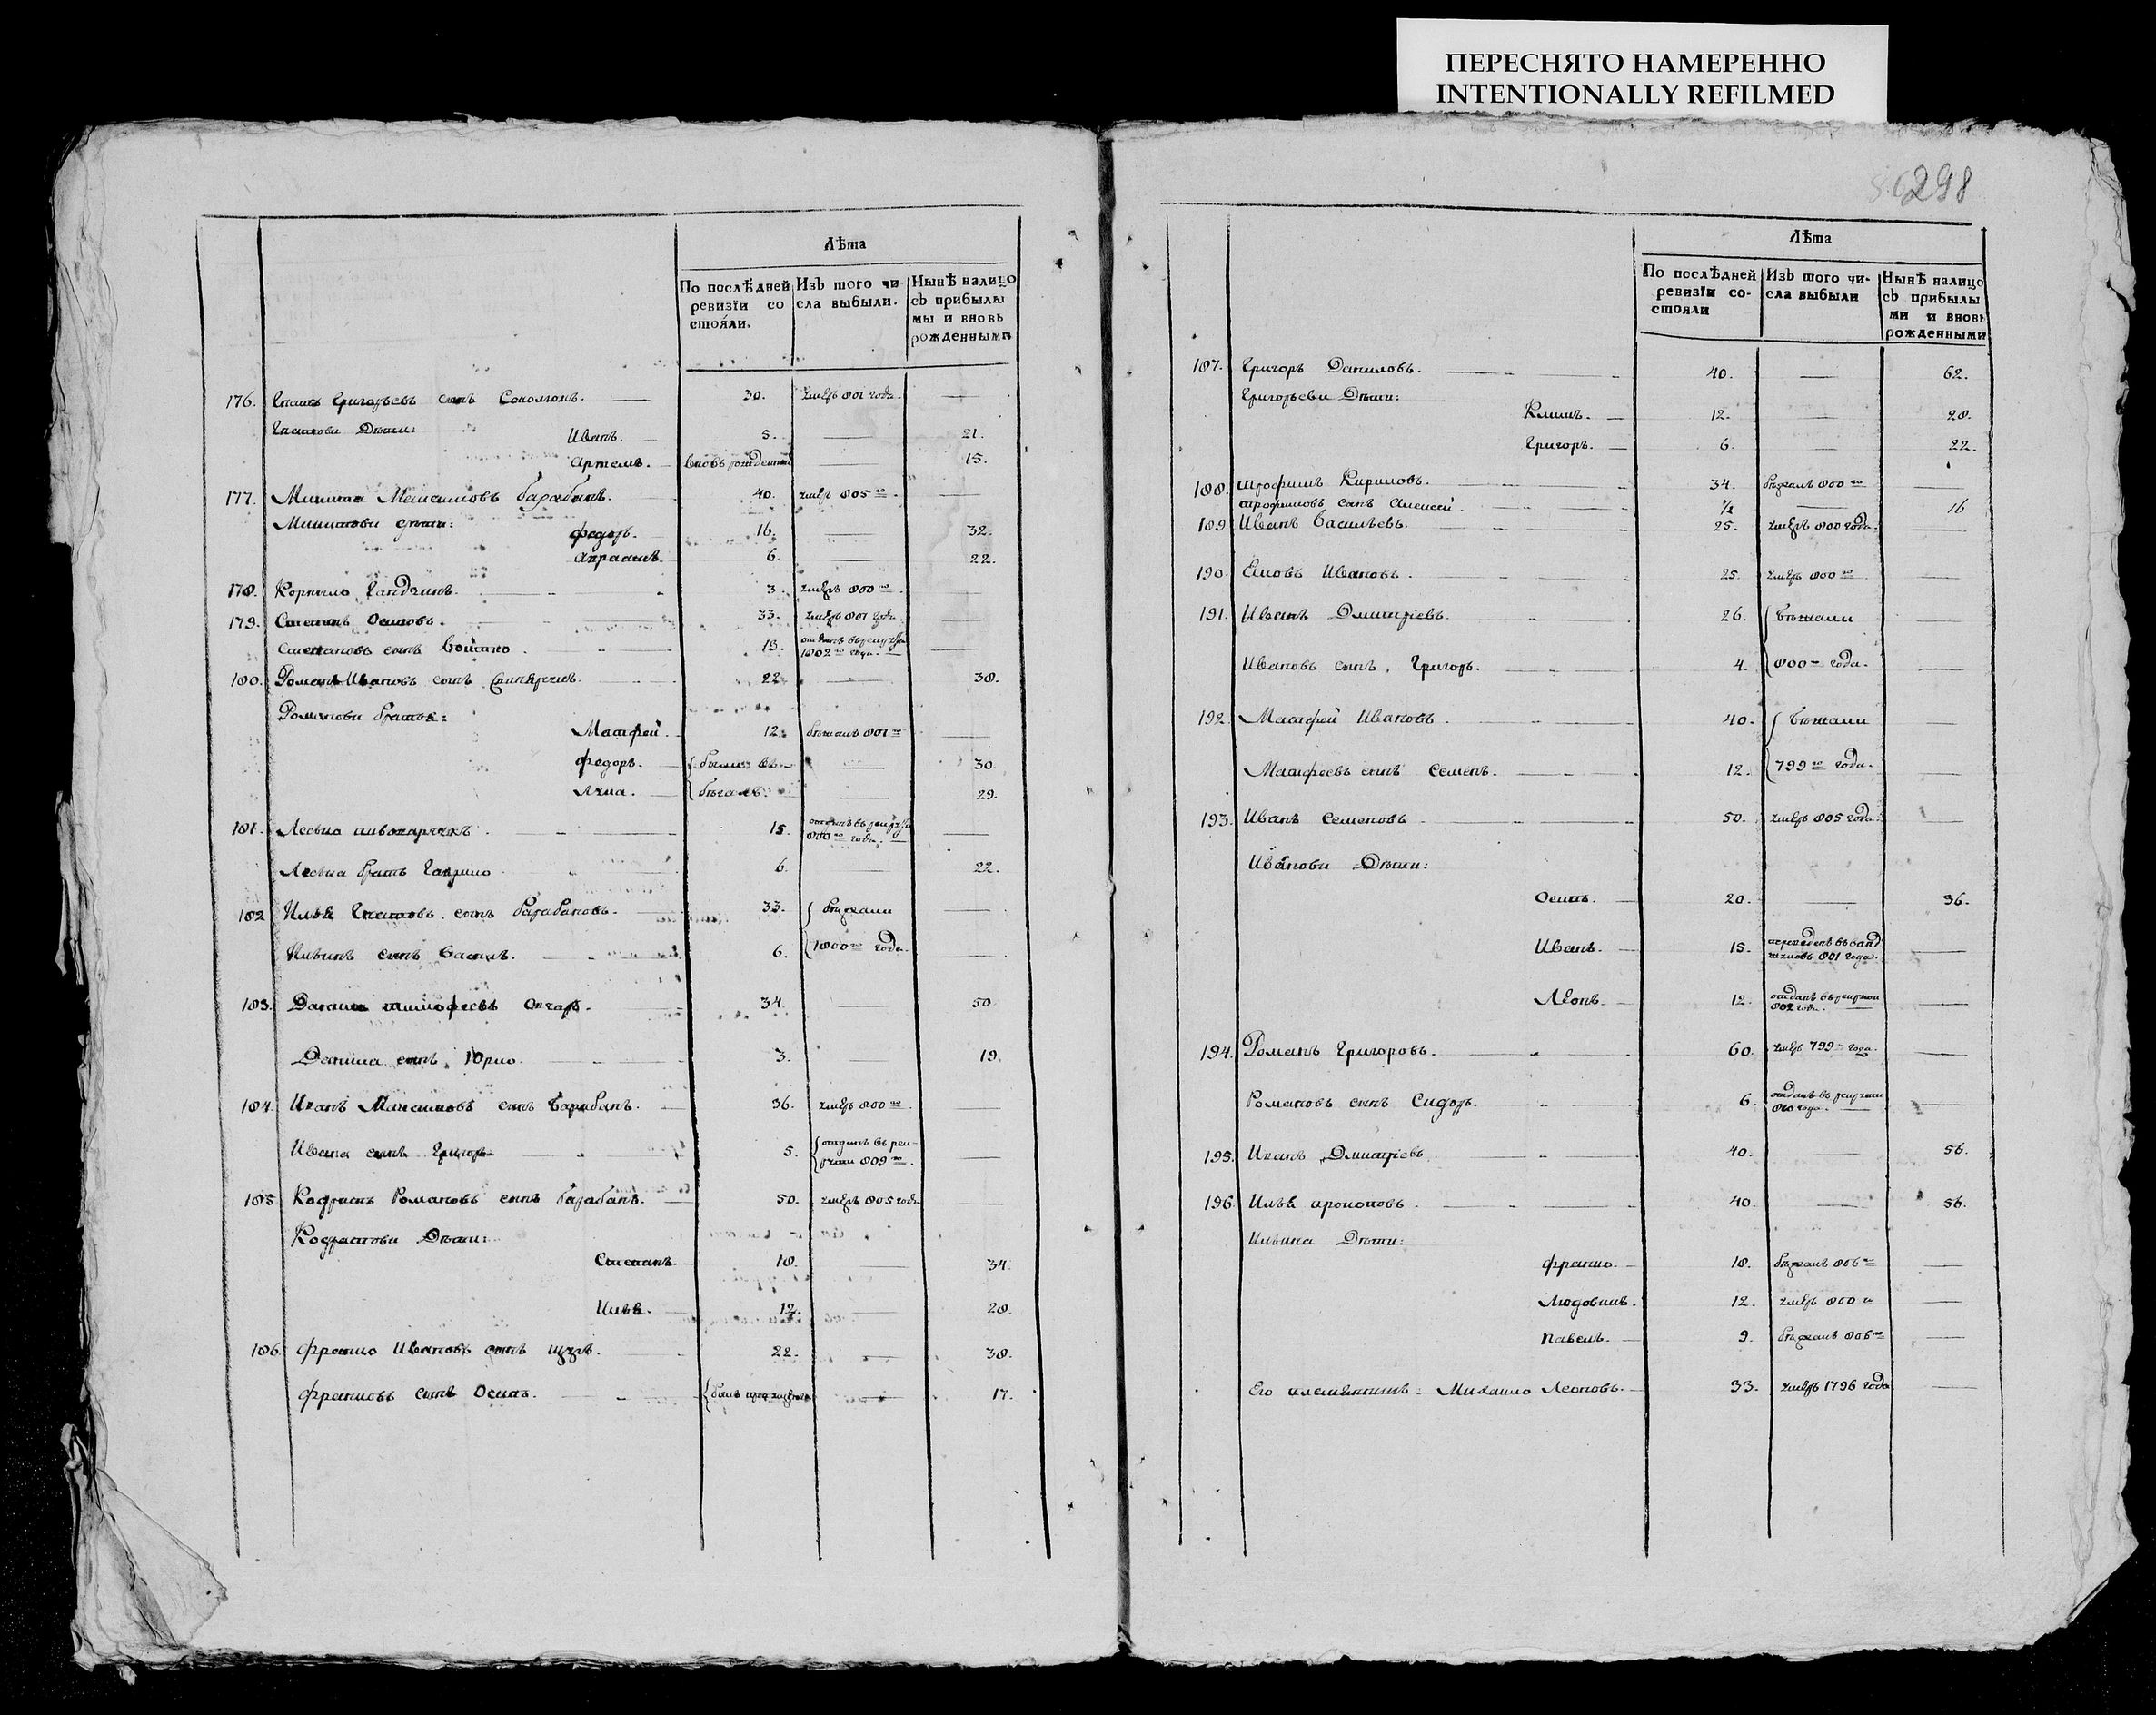 ПЕРЕСНЯТО НАМЕРЕННО
INTENTIONALLY REFILMED
298
Лѣта
По послѣдней ревизїи со стояли.
Изъ того чи сла выбыли.
Нынѣ налицо съ прибылы мы и вновь рожденными
176. Игнатъ Григорьевъ сынъ 30. умеръ 801 года. —
Игнатови Дѣти:
Иванъ. 5. — 21.
Артемъ. вновь рожденный — 15.
177. Микита Максимовъ барабанъ. 40. умеръ 805го. —
Микитови дѣти:
федоръ. 16. — 32.
6. — 22.
178. Корнило 3. умеръ 800го. —
179. Степанъ Осиповъ. 33. умеръ 801 года. —
Степановъ сынъ Войтко. 13. отданъ въ рекруты 1802го года. —
180. Романъ Ивановъ сынъ 22 — 38.
Романови братья:
Матфей. 12. бежалъ 801го —
федоръ. были въ — 30.
Лука. бегахъ. — 29.
181. Леско 15. отданъ въ рекруты 800го года. —
Леска братъ Гаврило 6. — 22.
182 Илья Игнатовъ сынъ барабановъ. 33. бежали —
Ильинъ сынъ Василь. 6. 1800го года. —
183. Данила тимофеевъ Овчаръ. 34. — 50
Данила сынъ Юрко. 3. — 19.
184. Иванъ Максимовъ сынъ Барабанъ. 36. умеръ 800го.
Ивана сынъ Григоръ 5. отданъ въ рекруты 809го. —
185 Кодратъ Романовъ сынъ барабанъ. 50. умеръ 805 года —
Кодратови Дѣти:
Степанъ. 18. — 34.
Илья. 12. — 28.
186. франко Ивановъ сынъ 22. — 38.
франковъ сынъ Осипъ. — 17.
Лѣта
По послѣдней ревизїи со- стояли
Изъ того чи- сла выбыли
Нынѣ налицо съ прибылы ми и вновь рожденными
187. Григоръ Даниловъ. 40. — 62.
Григорьеви Дѣти:
Климъ. 12. — 28.
Григоръ. 6. — 22.
188. трофимъ Кириловъ. 34. бежалъ 800го —
трофимовъ сынъ Алексей. ½ — 16
189. Иванъ Васильевъ. 25. умеръ 800 года. —
190. Ивановъ. 25. умеръ 800го —
191. Иванъ Дмитрїевъ. 26. бѣжали —
Ивановъ сынъ. Григоръ. 4. 800го года. —
192. Матфей Ивановъ. 40. бѣжали —
Матфеевъ сынъ Семенъ. 12. 799го года. —
193. Иванъ Семеновъ 50. умеръ 805 года. —
Иванови Дѣти:
Осипъ. 20. — 36.
Иванъ. 15. 801 года. —
Леонъ. 12. отданъ въ рекруты 802 года. —
194. Романъ Григоровъ. 60. умеръ 799го года. —
Романовъ сынъ Сидоръ. 6. отданъ въ рекруты года. —
195. Иванъ Дмитрїевъ. 40. — 56.
196. Илья прокоповъ. 40. — 56.
Ильина Дѣти:
франко. 18. бежалъ 806го —
Людовикъ. 12. умеръ 800го —
Павелъ. 9. бежалъ 806го —
Его племянникъ: Михайло Леоновъ. 33. умеръ 1796 года —